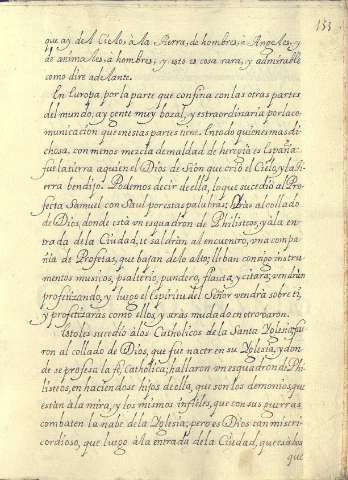 133
que ay del Cielo, à la tierra, de hombres, a Angeles, y
de animales, a hombres; y esto es cosa rara, y admirable
como dire adelante.
En Europa, por la parte que confina con las otras partes
del mundo, ay gente muy bozal, y extraordinaria por la co-
municacion que en estas partes tiene. En todo quien es mas di-
chosa, con menos mezcla de maldad de heregia es España:
fue la tierra a quien el Dios de Sion que crió el Cielo, y la tie-
rra bendijo. Podemos decir de ella, lo que sucedió al Pro-
feta Samuel con Saul por estas palabras; Iràs al collado
de Dios, donde està un esquadron de Philisteos, y à la en-
trada de la Ciudad, te saldràn al encuentro, una compa-
ñia de Profetas, que bajan de lo alto, lleban consigo instru-
mentos musicos, psalterio, pandero, flauta, y citara; vendràn
profetizando, y luego el Espiritu del Señor vendrà sobre ti,
y profetizaràs como ellos, y seràs mudado en otro baron.
Esto les sucedió à los Catholicos de la Santa Yglesia, fue-
ron al collado de Dios, que fue nacer en su Yglesia, y don-
de se profesa la fe, Catholica; hallaron un esquadron de Phi-
listeos, en haciendose hijos de ella, que son los demonios, que
estàn à la mira, y los mismos infieles, que con sus guerras
combaten la nabe de la Yglesia; pero es Dios tan miseri-
cordioso, que luego à la entrada de la Ciudad, que es a los
que